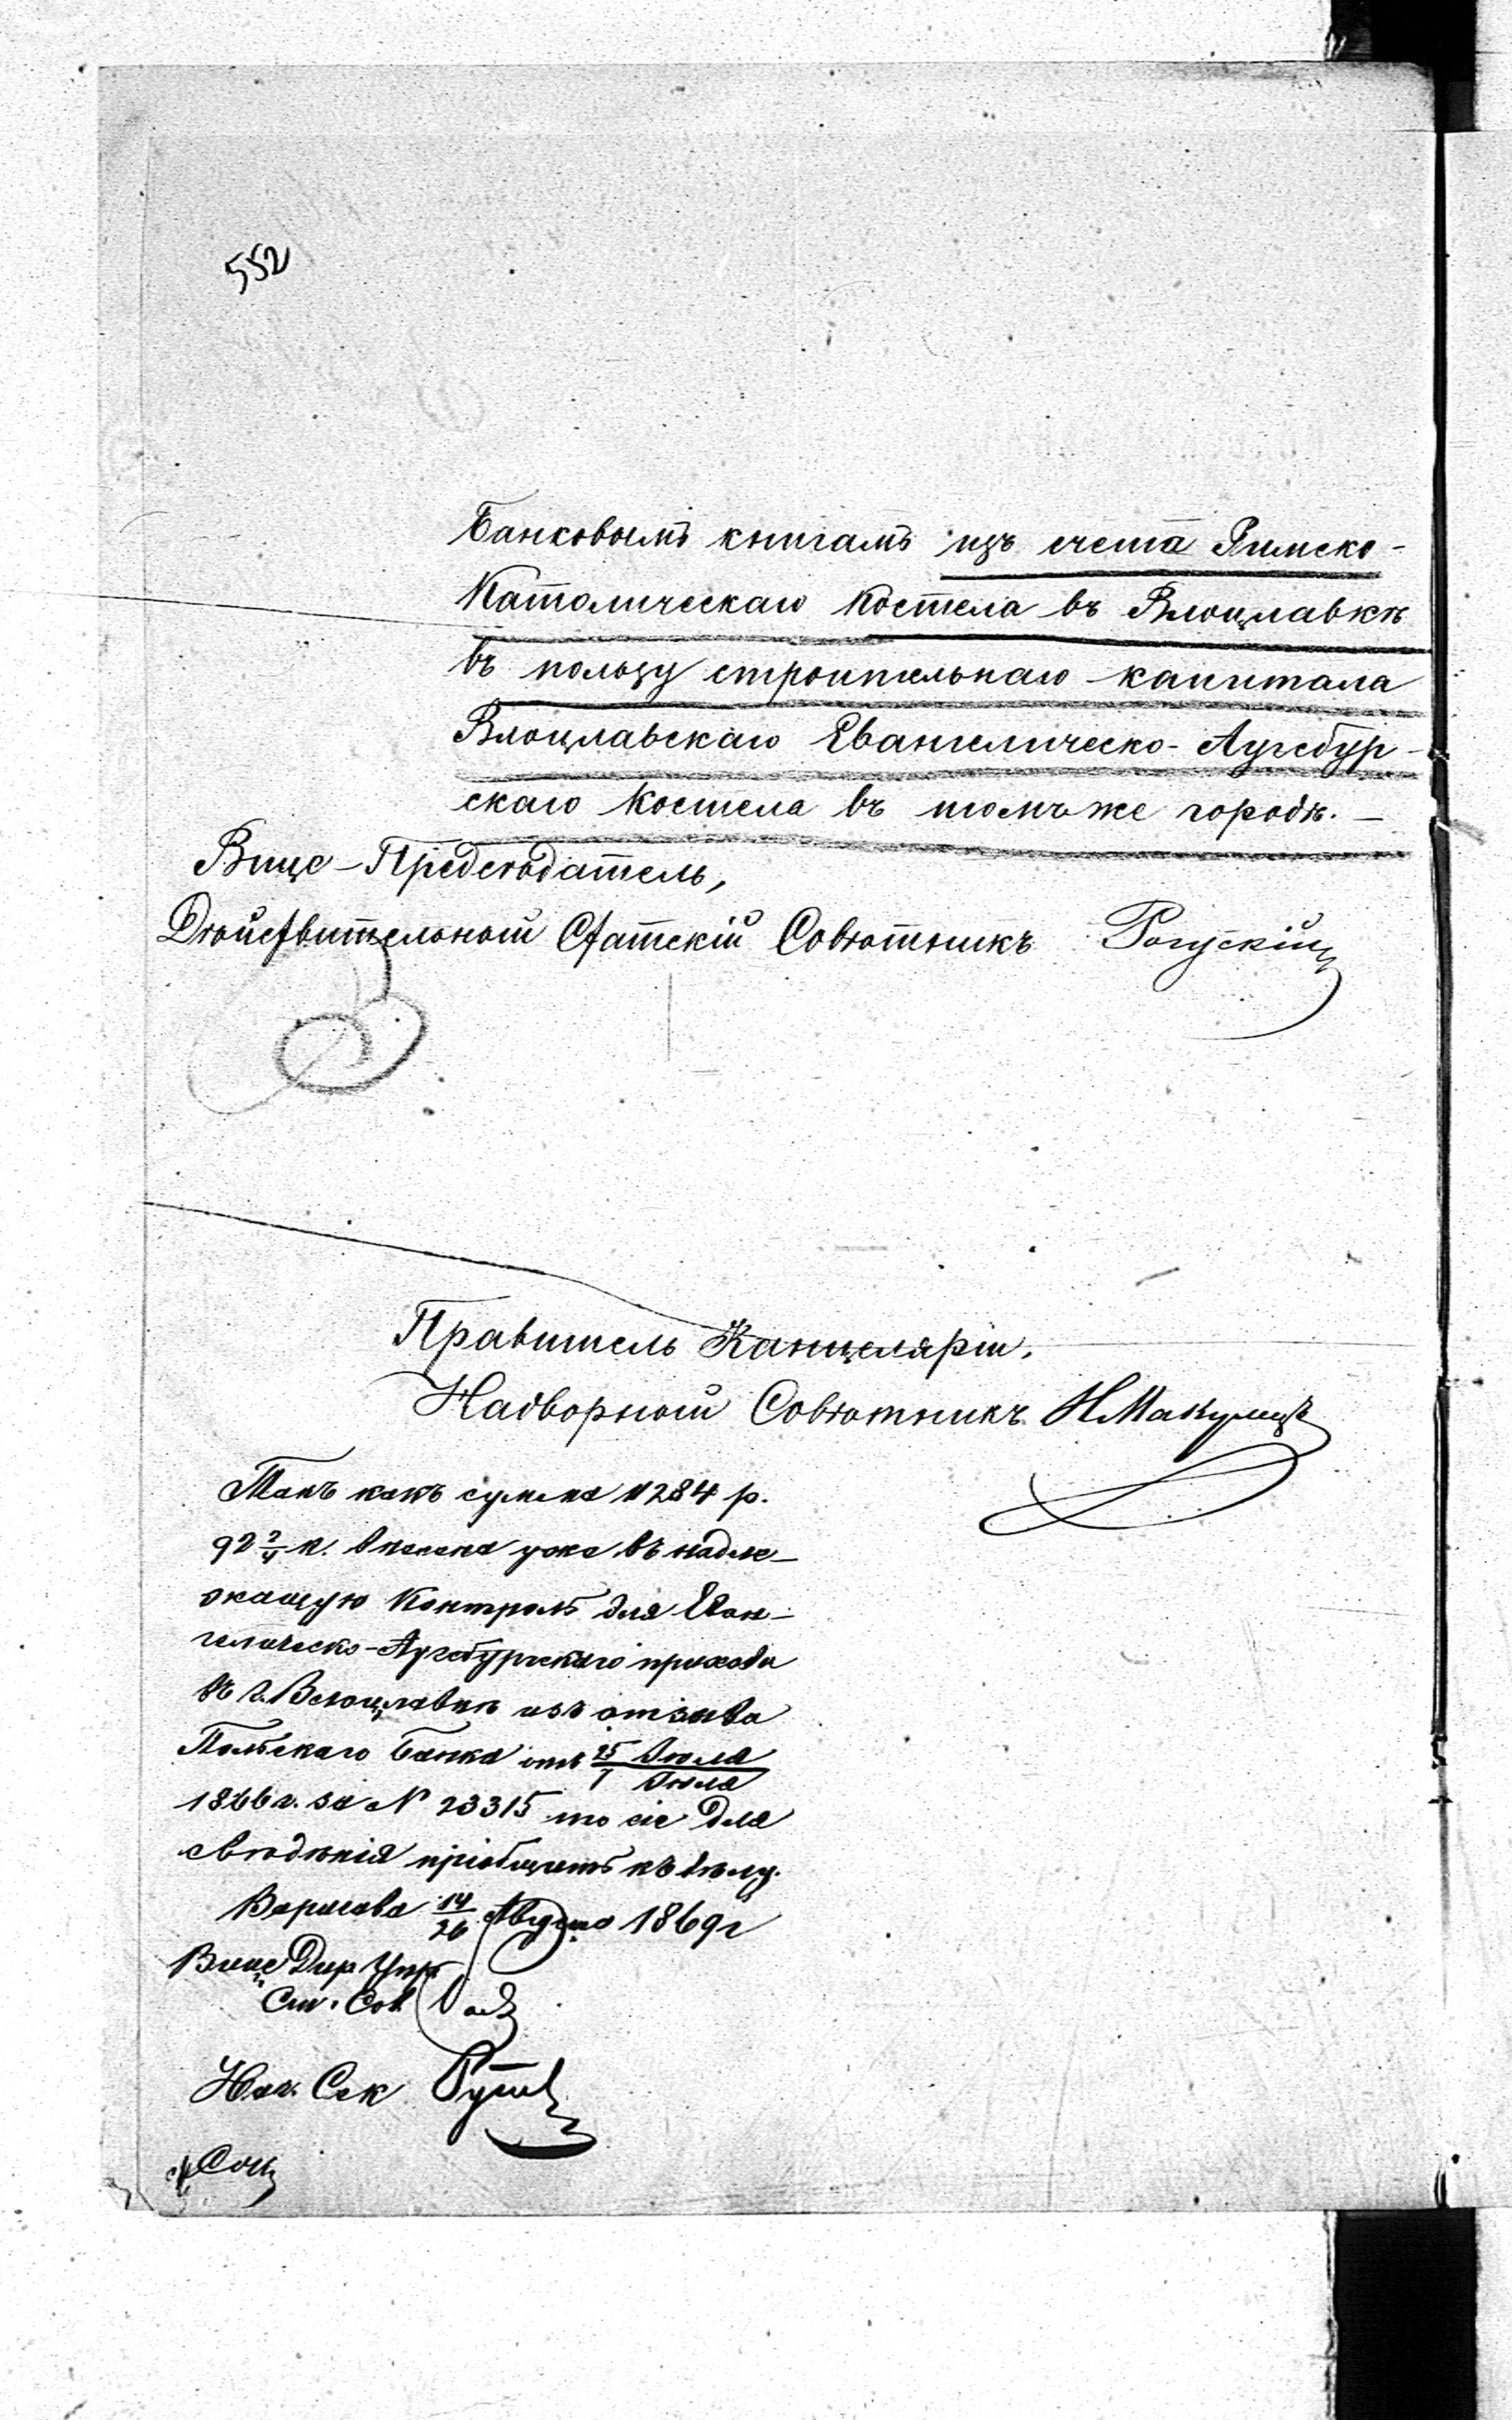 552
Банковымъ книгамъ изъ счета Римско-
Католическаго Костела въ Влоцлавкѣ
въ пользу строительнаго капитала
Влоцлавскаго Евангелическо-Аугсбур-
скаго Костела въ томъ же городѣ. —
Вице-Предсѣдатель,
Дѣйствительный Статскій Совѣтникъ Рогускій
Правитель Канцеляріи,
Надворный Совѣтникъ Н
Такъ какъ сумма 11284 р.
92 к. внесена уже въ надле-
жащую Контроль для Еван-
гелическо-Аугсбургскаго прихода
въ г. Влоцлавкѣ изъ отзыва
Польскаго Банка отъ
1866 г. за № 23315 то сіе для
свѣдѣнія пріобщить къ дѣлу.
Варшава 14/26 Августа 1869 г
Вице Дир Упр
Ст. Сов.
Нач. Сек